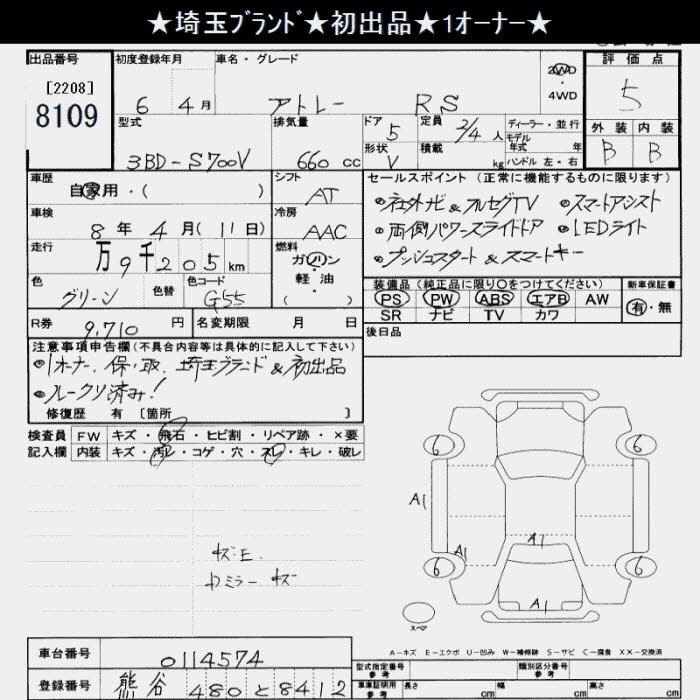 ★埼玉ﾌﾞﾗﾝﾄﾞ★初出品★1オーナー★
出品番号 初度登録年月 車名・グレード 評価点
[2208]
8109
6 4月 アトレー RS 2WD・4WD 5
型式 排気量 ドア 定員 ディーラー・並行 外装 内装
3BD-S700V 660cc 5 2/4人 モデル年式 年 B B
形状 積載
V kg ハンドル 左・右
車歴 シフト セールスポイント (正常に機能するものに限ります)
自家用・( ) AT
●社外ナビ&フルセグTV ●スマートアシスト
車検 冷房
8年4月(11日) AAC
●両側パワースライドドア ●LEDライト
走行 燃料
万9千205km ガソリン・軽油・( )
●プッシュスタート&スマートキー
色 色替 色コード 装備品(純正品に限り○をつけてください) 新車保証書
グリーン G55 PS PW ABS エアB AW 有・無
SR ナビ TV カワ
R券 9,710円 名変期限 月 日 後日品
注意事項申告欄(不具合内容等は具体的に記入して下さい)
●1オーナー.保・取.埼玉ブランド&初出品
●ルークリ済み!
修復歴 有 [箇所 ]
検査員 FW キズ・飛石・ヒビ割・リペア跡・×要
記入欄 内装 キズ・汚レ・コゲ・穴・スレ・キレ・破レ
6 6
A1
A1 A1
6 6
キズE.
カミラー キズ
A1
スペア
A-キズ E-エクボ U-凹み W-補修跡 S-サビ C-腐食 XX-交換済
車台番号 0114574
型式指定番号 参考 類別区分番号 参考
登録番号 熊谷 480と8412
車庫証明用 参考 長さ cm 幅 cm 高さ cm